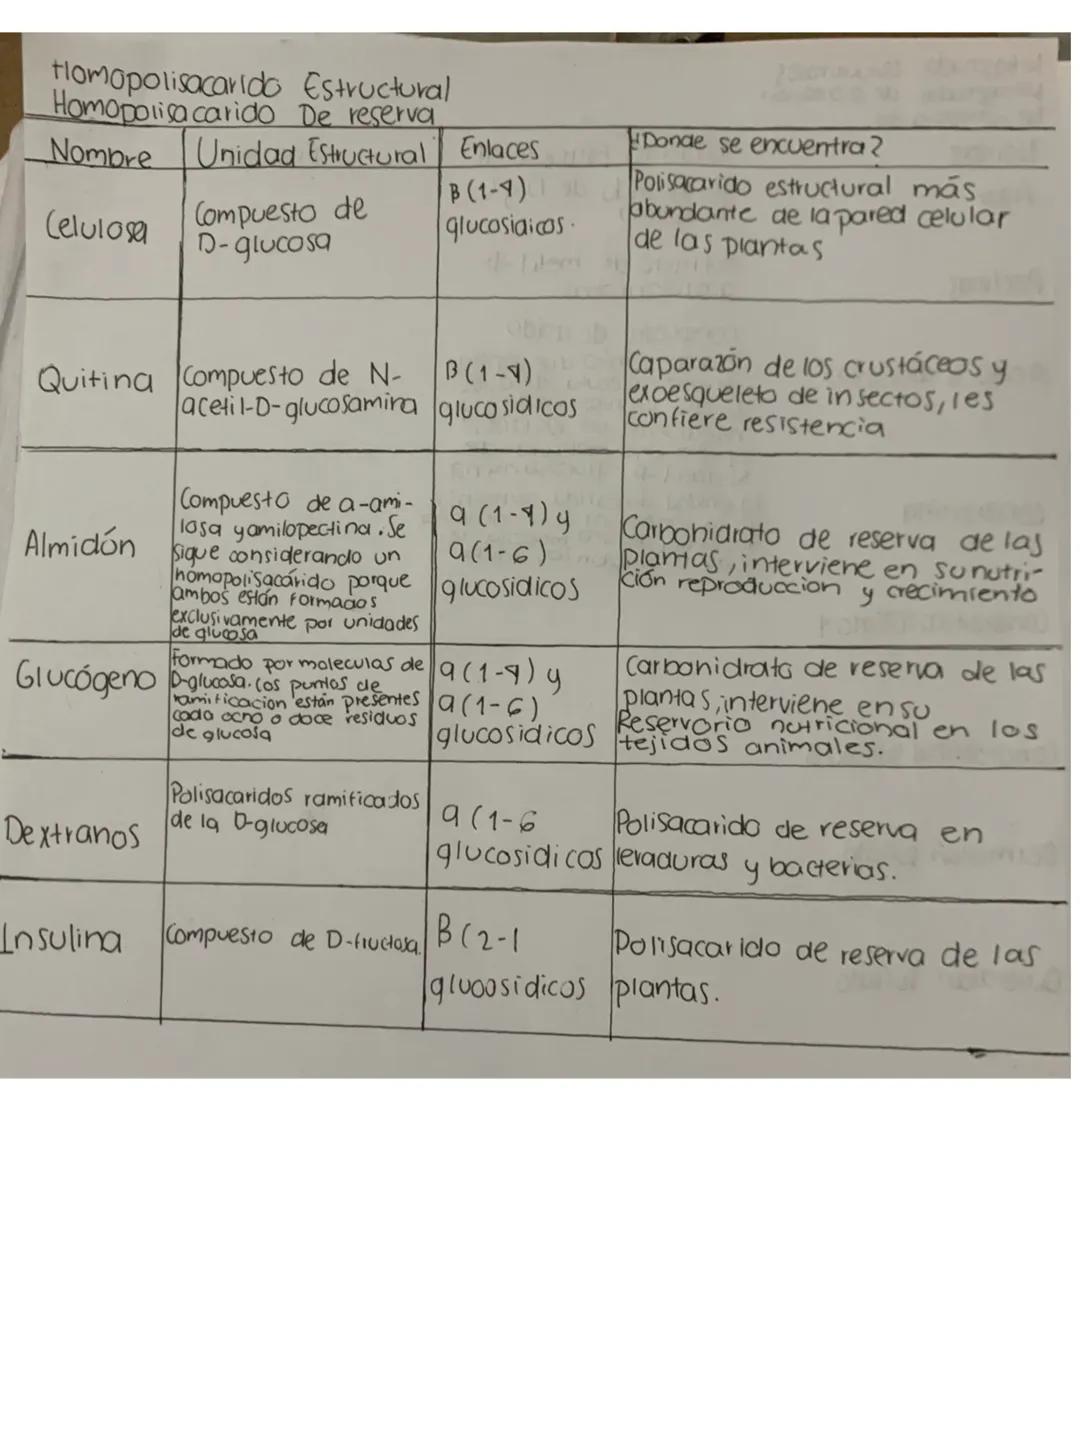 Homopolisacarido Estructural
Homopolisacarido De reserva
Nombre
Unidad Estructural
Enlaces
¿Donde se encuentra?
Celulosa
Compuesto de
D-glucosa
B (1-4)
glucosidicos.
Polisacarido estructural más
abundante de la pared celular
de las plantas
Quitina
Compuesto de N-
acetil-D-glucosamina
B (1-4)
glucosidicos
Caparazón de los crustáceos y
exoesqueleto de insectos, les
confiere resistencia
Almidón
Compuesto de a-ami-
losa y amilopectina. Se
sigue considerando un
homopolisacárido porque
ambos están formados
exclusivamente por unidades
de glucosa
a (1-4) y
a (1-6)
glucosidicos
Carbohidrato de reserva de las
plantas, interviene en su nutri-
ción reproduccion y crecimiento
Glucógeno
Formado por moleculas de
D-glucosa. Los puntos de
ramificacion están presentes
cada ocho o doce residuos
de glucosa
a (1-4) y
a (1-6)
glucosidicos
Carbohidrato de reserva de las
plantas, interviene en su
Reservorio nutricional en los
tejidos animales.
Dextranos
Polisacaridos ramificados
de la D-glucosa
a (1-6
glucosidicos
Polisacarido de reserva en
levaduras y bacterias.
Insulina
Compuesto de D-fructosa.
B (2-1
glucosidicos
Polisacarido de reserva de las
plantas.